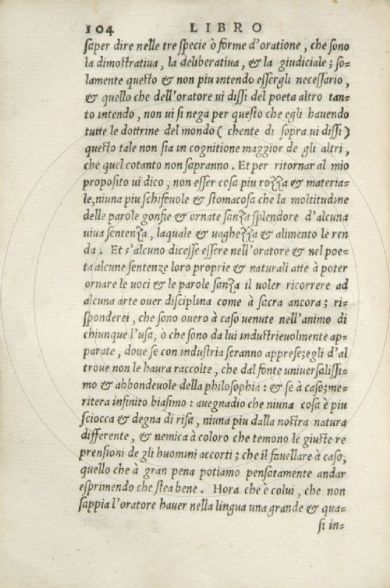 104 LIBRO
saper dire nelle tre specie ò forme d'oratione, che sono
la dimostratiua, la deliberatiua, & la giudiciale; so-
lamente questo & non piu intendo essergli necessario,
& quello che dell'oratore ui dissi del poeta altro tan-
to intendo, non ui si nega per questo che egli hauendo
tutte le dottrine del mondo (chente di sopra ui dissi)
questo tale non sia in cognitione maggior de gli altri,
che quel cotanto non sapranno. Et per ritornar al mio
proposito ui dico, non esser cosa piu rozza & materia-
le, niuna piu schifeuole & stomacosa che la moltitudine
delle parole gonfie & ornate sanza splendore d'alcuna
uiua sentenza, laquale & uaghezza & alimento le ren
da. Et s'alcuno dicesse essere nell'oratore & nel poe-
ta alcune sentenze loro proprie & naturali atte à poter
ornare le uoci & le parole sanza il uoler ricorrere ad
alcuna arte ouer disciplina come à sacra ancora; ri-
sponderei, che sono ouero à caso uenute nell'animo di
chiunque l'usa, ò che sono da lui industrieuolmente ap-
parate, doue se con industria seranno apprese; egli d'al
troue non le haura raccolte, che dal fonte uniuersalissi-
mo & abbondeuole della philosophia: & se à caso; me-
ritera infinito biasimo: auegnadio che niuna cosa è piu
sciocca & degna di risa, niuna piu dalla nostra natura
differente, & nemica à coloro che temono le giuste re
prensioni de gli huomini accorti; che il fauellare à caso,
quello che à gran pena potiamo pensatamente andar
esprimendo che stea bene. Hora che è colui, che non
sappia l'oratore hauer nella lingua una grande & qua-
si in-